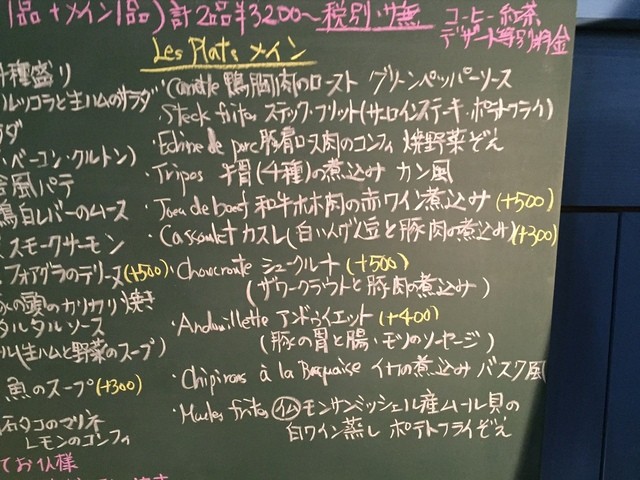 1品+メイン1品) 計2品¥3200〜税別・サ無
コーヒー・紅茶
デザート等別料金
Les Plats メイン
種盛り
ルッコラと生ハムのサラダ
ラダ
・ベーコン・クルトン)
風パテ
鶏白レバーのムース
スモークサーモン
フォアグラのテリーヌ(+500)
豚の頭のカリカリ焼き
タルタルソース
(生ハムと野菜のスープ)
魚のスープ(+300)
石タコのマリネ
レモンのコンフィ
てお仕様
・Canette 鴨胸肉のロースト グリーンペッパーソース
・Steck frites ステック・フリット(サーロインステーキ・ポテトフライ)
・Echine de porc 豚肩ロース肉のコンフィ 焼野菜ぞえ
・Tripes 牛胃(4種)の煮込み カン風
・Joeu de boeuf 和牛ホホ肉の赤ワイン煮込み(+500)
・Cassoulet カスレ(白いんげん豆と豚肉の煮込み)(+300)
・Choucroute シュークルート(+500)
(ザワークラウトと豚肉の煮込み)
・Andouillette アンドゥイエット(+400)
(豚の胃と腸・モツのソーセージ)
・Chipirons à la Basquaise イカの煮込み バスク風
・Mucles frites 仏 モンサンミッシェル産ムール貝の
白ワイン蒸し ポテトフライぞえ